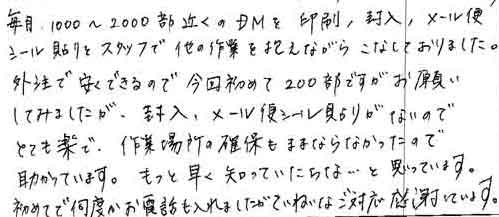 毎月、1000〜2000部近くのDMを印刷，封入，メール便
シール貼りとスタッフで他の作業を抱えながらこなしておりました。
外注で安くできるので今回初めて200部ですがお願い
してみましたが、封入、メール便シール貼りがないので
とても楽で、作業場所の確保もままならなかったので
助かっています。もっと早く知っていたらな…と思っています。
初めてで何度かお電話も入れましたがていねいなご対応感謝しています。